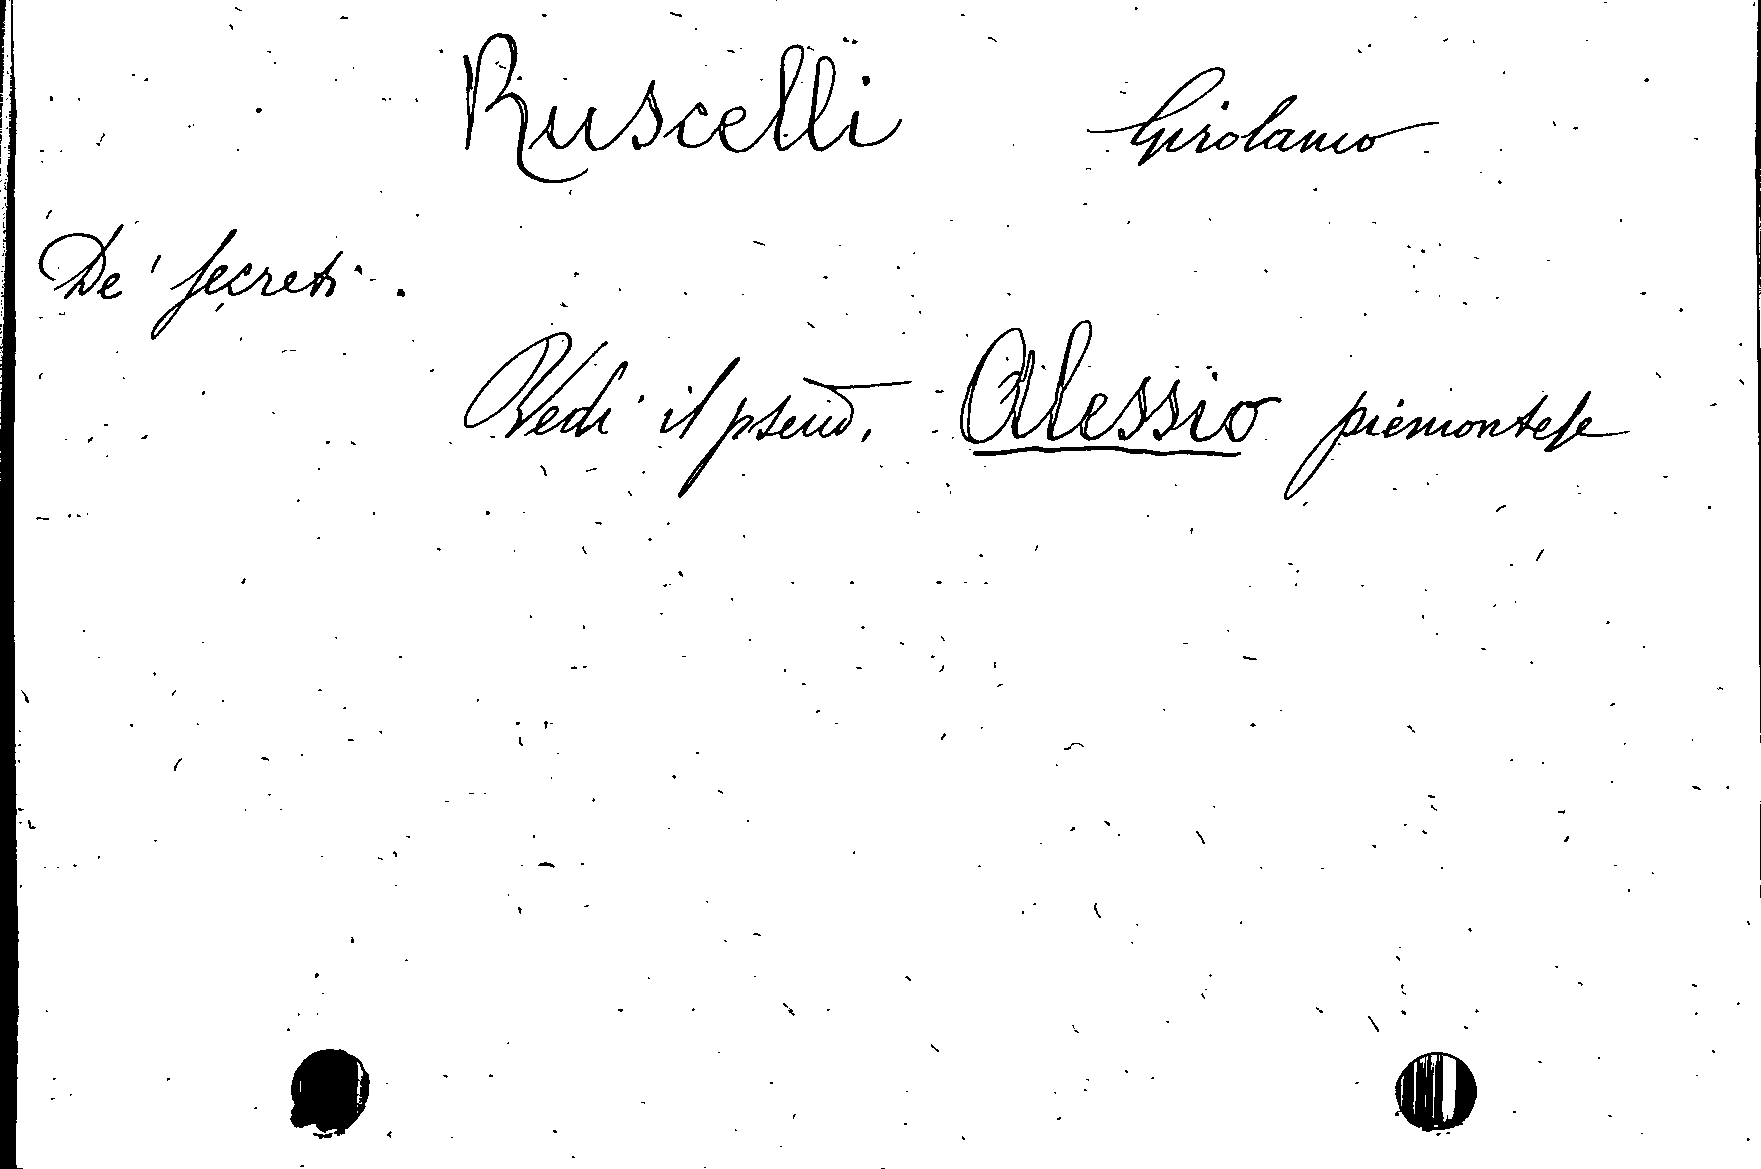 Ruscelli Girolamo
De' secreti.
Vedi il pseud. Alessio piemontese